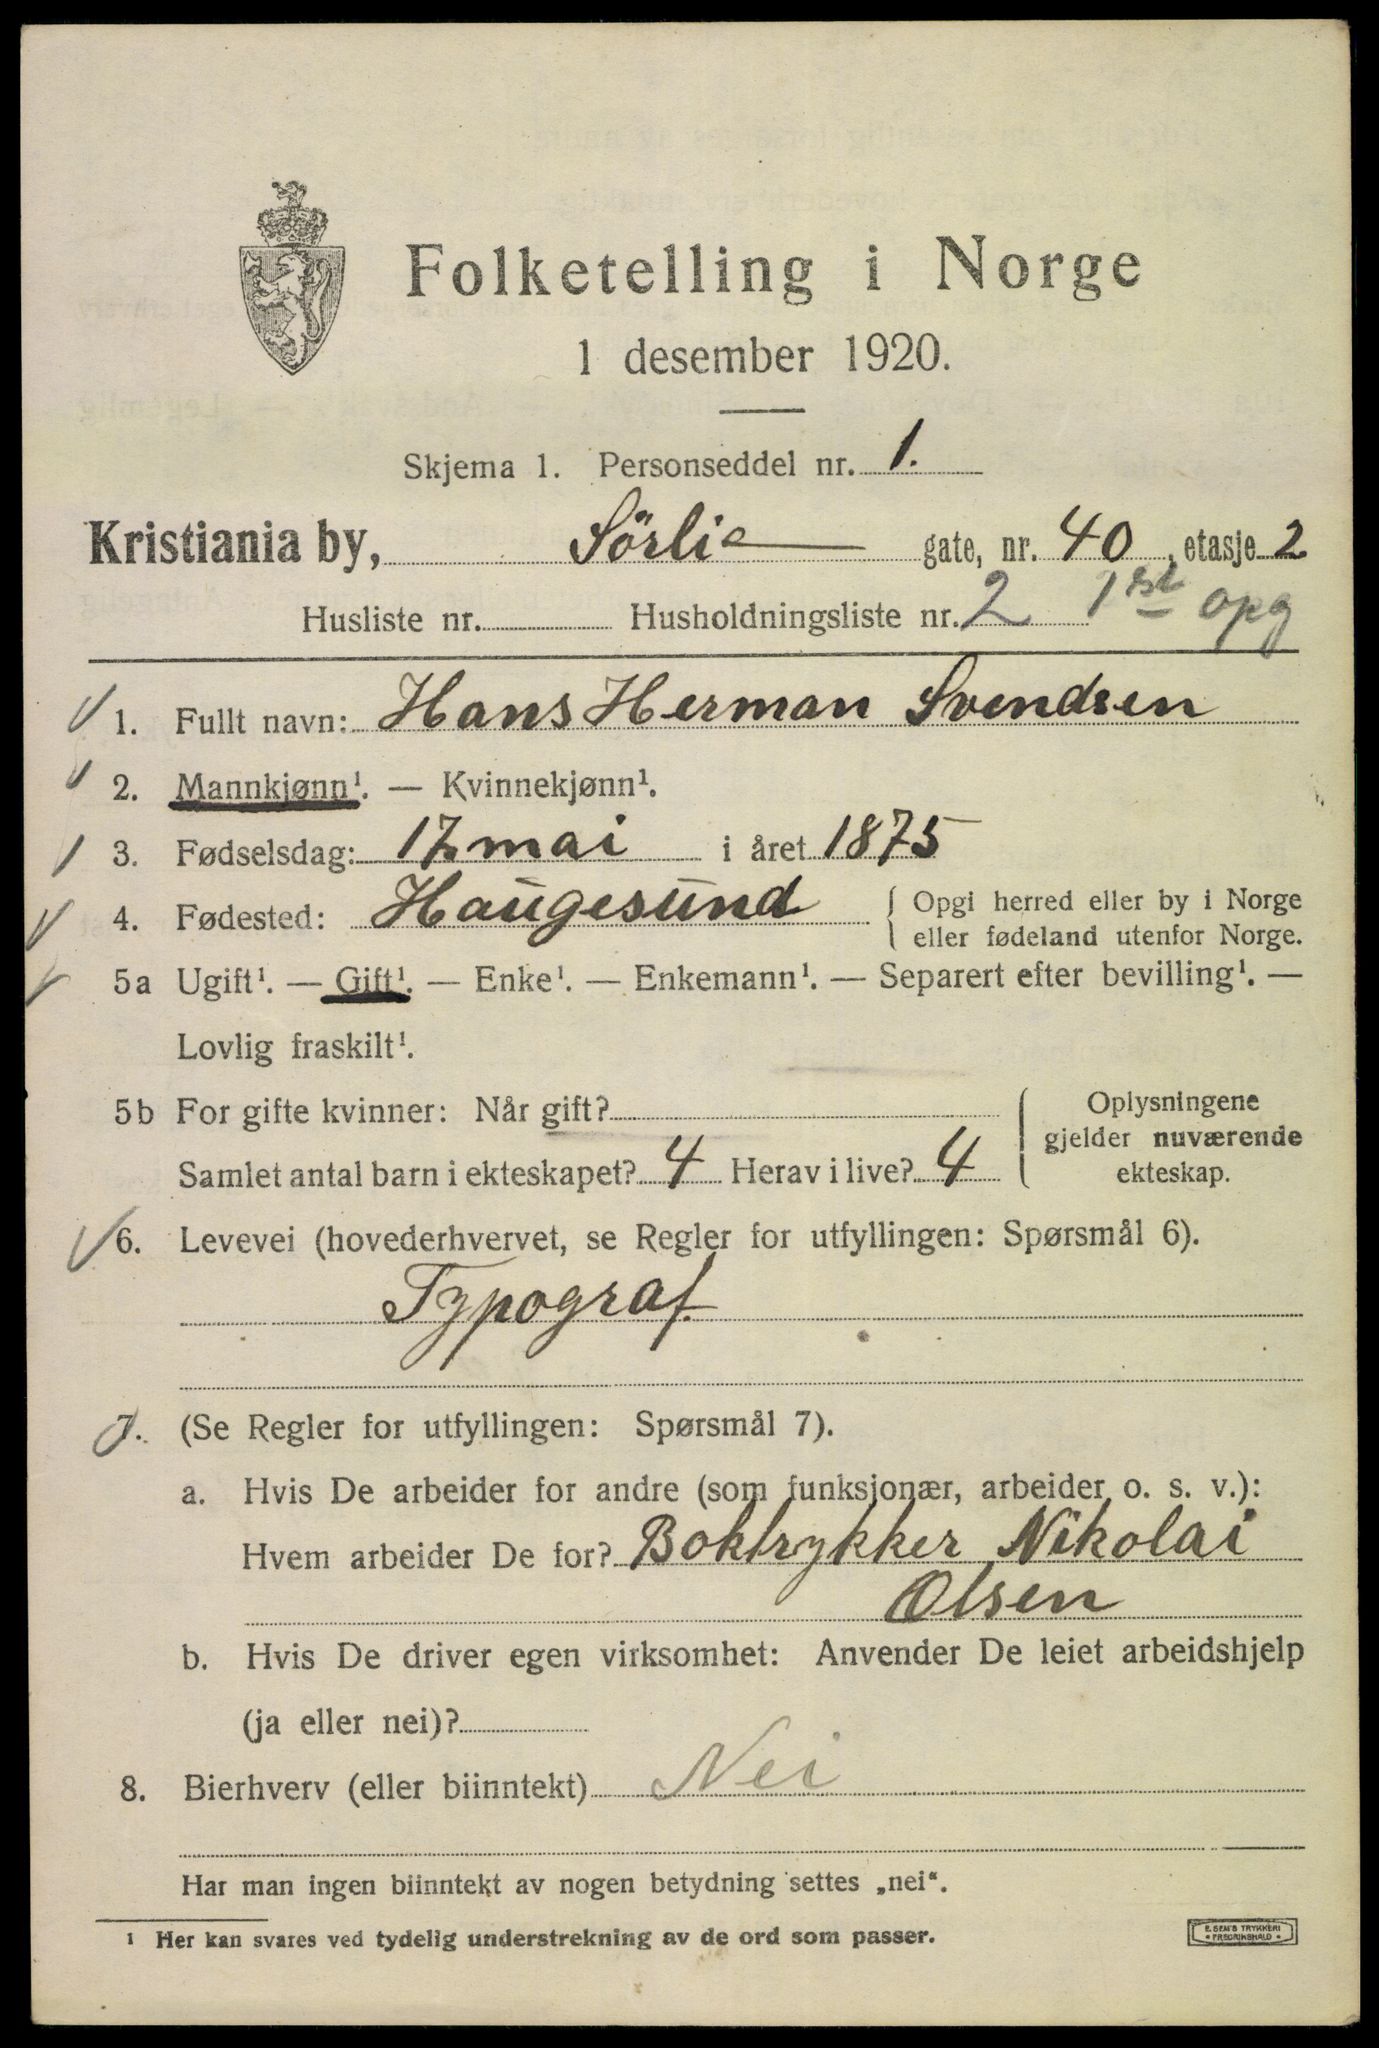 Folketelling i Norge
1 desember 1920.
Skjema 1. Personseddel nr. 1.
Kristiania by, Sörlie gate, nr. 40, etasje 2
Husliste nr. Husholdningsliste nr. 2 1st opg
1. Fullt navn: Hans Herman Svendsen
2. Mannkjønn¹. — Kvinnekjønn¹.
3. Fødselsdag: 17. mai i året 1875
4. Fødested: Haugesund { Opgi herred eller by i Norge
eller fødeland utenfor Norge.
5a Ugift¹. — Gift¹. — Enke¹. — Enkemann¹. — Separert efter bevilling¹. —
Lovlig fraskilt¹.
5b For gifte kvinner: Når gift? { Oplysningene
gjelder nuværende
Samlet antal barn i ekteskapet? 4 Herav i live? 4
ekteskap.
6. Levevei (hovederhvervet, se Regler for utfyllingen: Spørsmål 6).
Typograf.
7. (Se Regler for utfyllingen: Spørsmål 7).
a. Hvis De arbeider for andre (som funksjonær, arbeider o. s. v.):
Hvem arbeider De for? Boktrykker Nikolai
Olsen
b. Hvis De driver egen virksomhet: Anvender De leiet arbeidshjelp
(ja eller nei)?
8. Bierhverv (eller biinntekt) Nei
Har man ingen biinntekt av nogen betydning settes „nei“.
¹ Her kan svares ved tydelig understrekning av de ord som passer.
E. SEM'S TRYKKERI
• FREDRIKSHALD •